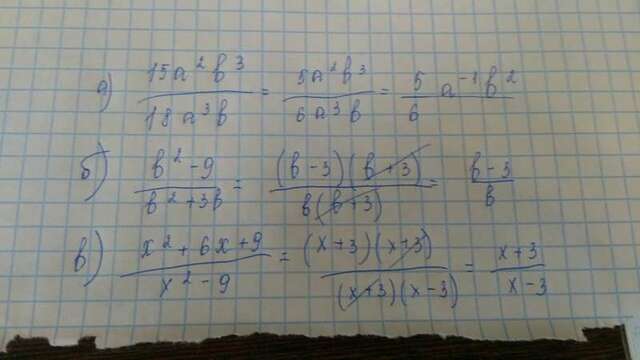 а) 15a²b³/18a³b = 5a²b³/6a³b = 5/6 a⁻¹b²
б) b²-9/b²+3b = (b-3)(b+3)/b(b+3) = b-3/b
в) x²+6x+9/x²-9 = (x+3)(x+3)/(x+3)(x-3) = x+3/x-3